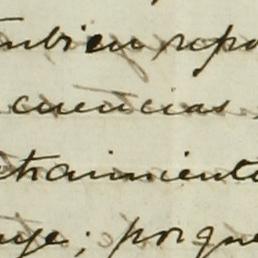 mbien repo
cuencias
traimiento
aje; porque